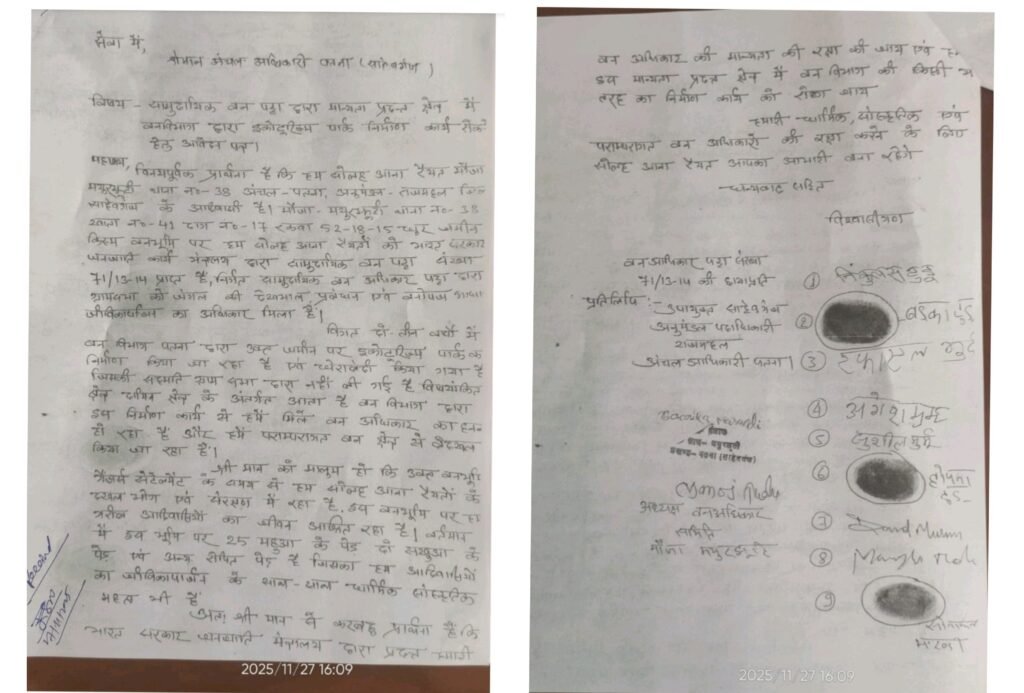 सेवा में,
श्रीमान अंचल अधिकारी पतना (साहेबगंज)
विषय - सामुदायिक वन पट्टा द्वारा मान्यता प्रदत्त क्षेत्र में
वनविभाग द्वारा इकोटूरिज्म पार्क निर्माण कार्य रोकने
हेतु आवेदन पत्र।
महाशय,
विनयपूर्वक प्रार्थना है कि हम सोलह आना रैयत मौजा
मयुरझुटी थाना नं०-38 अंचल-पतना, अनुमंडल-राजमहल जिला
साहेबगंज के आदिवासी है। मौजा-मयुरझुटी थाना नं०-38
खाता नं०-41 दाग नं०-17 रकवा 52-18-15 धुर जमीन
किस्म वनभूमि पर हम सोलह आना रैयतों को भारत सरकार
जनजाति कार्य मंत्रालय द्वारा सामुदायिक वन पट्टा संख्या
71/13-14 प्राप्त है, निर्गत सामुदायिक वन अधिकार पट्टा द्वारा
ग्रामसभा को जंगल की देखभाल प्रबंधन एवं वनोपज
जीविकोपार्जन का अधिकार मिला है।
विगत दो तीन वर्षों में
वन विभाग पतना द्वारा उक्त जमीन पर इकोटूरिज्म पार्क का
निर्माण किया जा रहा है एवं घेराबंदी किया गया है
जिसकी सहमति ग्राम सभा द्वारा नहीं ली गई है विषयांकित
क्षेत्र के अंतर्गत आता है वन विभाग द्वारा
इस निर्माण कार्य से हमें मिले वन अधिकार का हनन
हो रहा है और हमें परम्परागत वन क्षेत्र से बेदखल
किया जा रहा है।
श्री मान को मालूम हो कि उक्त वनभूमि
सेटेलमेंट के समय से हम सोलह आना रैयतों के
दखल भोग एवं संरक्षण में रहा है, इस वनभूमि पर हम
गरीब आदिवासियों का जीवन आश्रित रहा है। वर्तमान
में इस भूमि पर 25 महुआ के पेड़ दो सखुआ के
पेड़ एवं अन्य पेड़ है जिसका हम आदिवासियों
का जीविकोपार्जन के साथ-साथ धार्मिक सांस्कृतिक
महत्व भी है
अतः श्री मान से करबद्ध प्रार्थना है कि
भारत सरकार जनजाति मंत्रालय द्वारा प्रदत्त हमारी
2025/11/27 16:09
वन अधिकार की मान्यता की रक्षा की जाय एवं
इस मान्यता प्रदत्त क्षेत्र में वन विभाग की किसी भी
तरह का निर्माण कार्य को रोका जाय
हमारी धार्मिक, सांस्कृतिक एवं
परम्परागत वन अधिकारों की रक्षा करने के लिए
सोलह आना रैयत आपका आभारी बना रहेगे
धन्यवाद सहित
विश्वासीगण
वन अधिकार पट्टा संख्या
71/13-14 की छायाप्रति
प्रतिलिपि:- उपायुक्त साहेबगंज
अनुमंडल पदाधिकारी
राजमहल
अंचल अधिकारी पतना।
①
②
③
④
⑤ सुशील मुर्मू
⑥
⑦ David Murmu
⑧
⑨
अध्यक्ष वनअधिकार
समिति
मौजा मयुरझुटी
2025/11/27 16:09